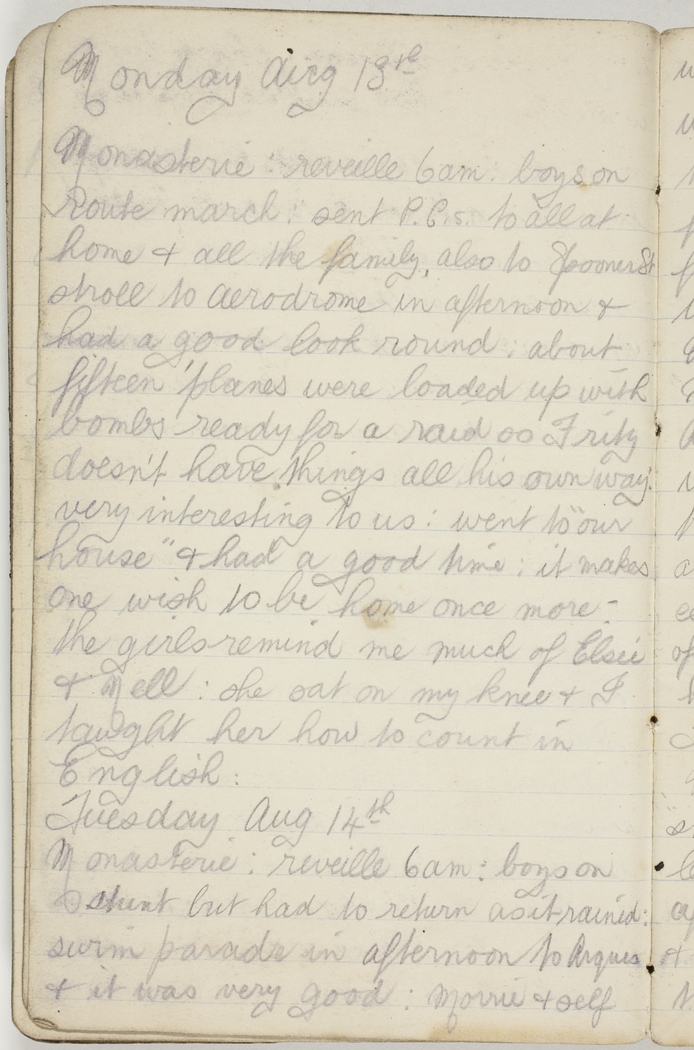 Monday Aug 13th
Monasterie : reveille 6am : boys on
Route march : sent P.C.s. to all at
home & all the family, also to Spooner St
stroll to aerodrome in afternoon &
had a good look round : about
fifteen 'planes were loaded up with
bombs ready for a raid so Fritz
doesn't have things all his own way.
very interesting to us : went to "our
house" & had a good time : it makes
one wish to be home once more -
the girls remind me much of Elsie
& Nell : she sat on my knee & I
taught her how to count in
English :
Tuesday Aug 14th
Monasterie : reveille 6am : boys on
stunt but had to return as it rained :
swim parade in afternoon to Arques
& it was very good : Morrie & self